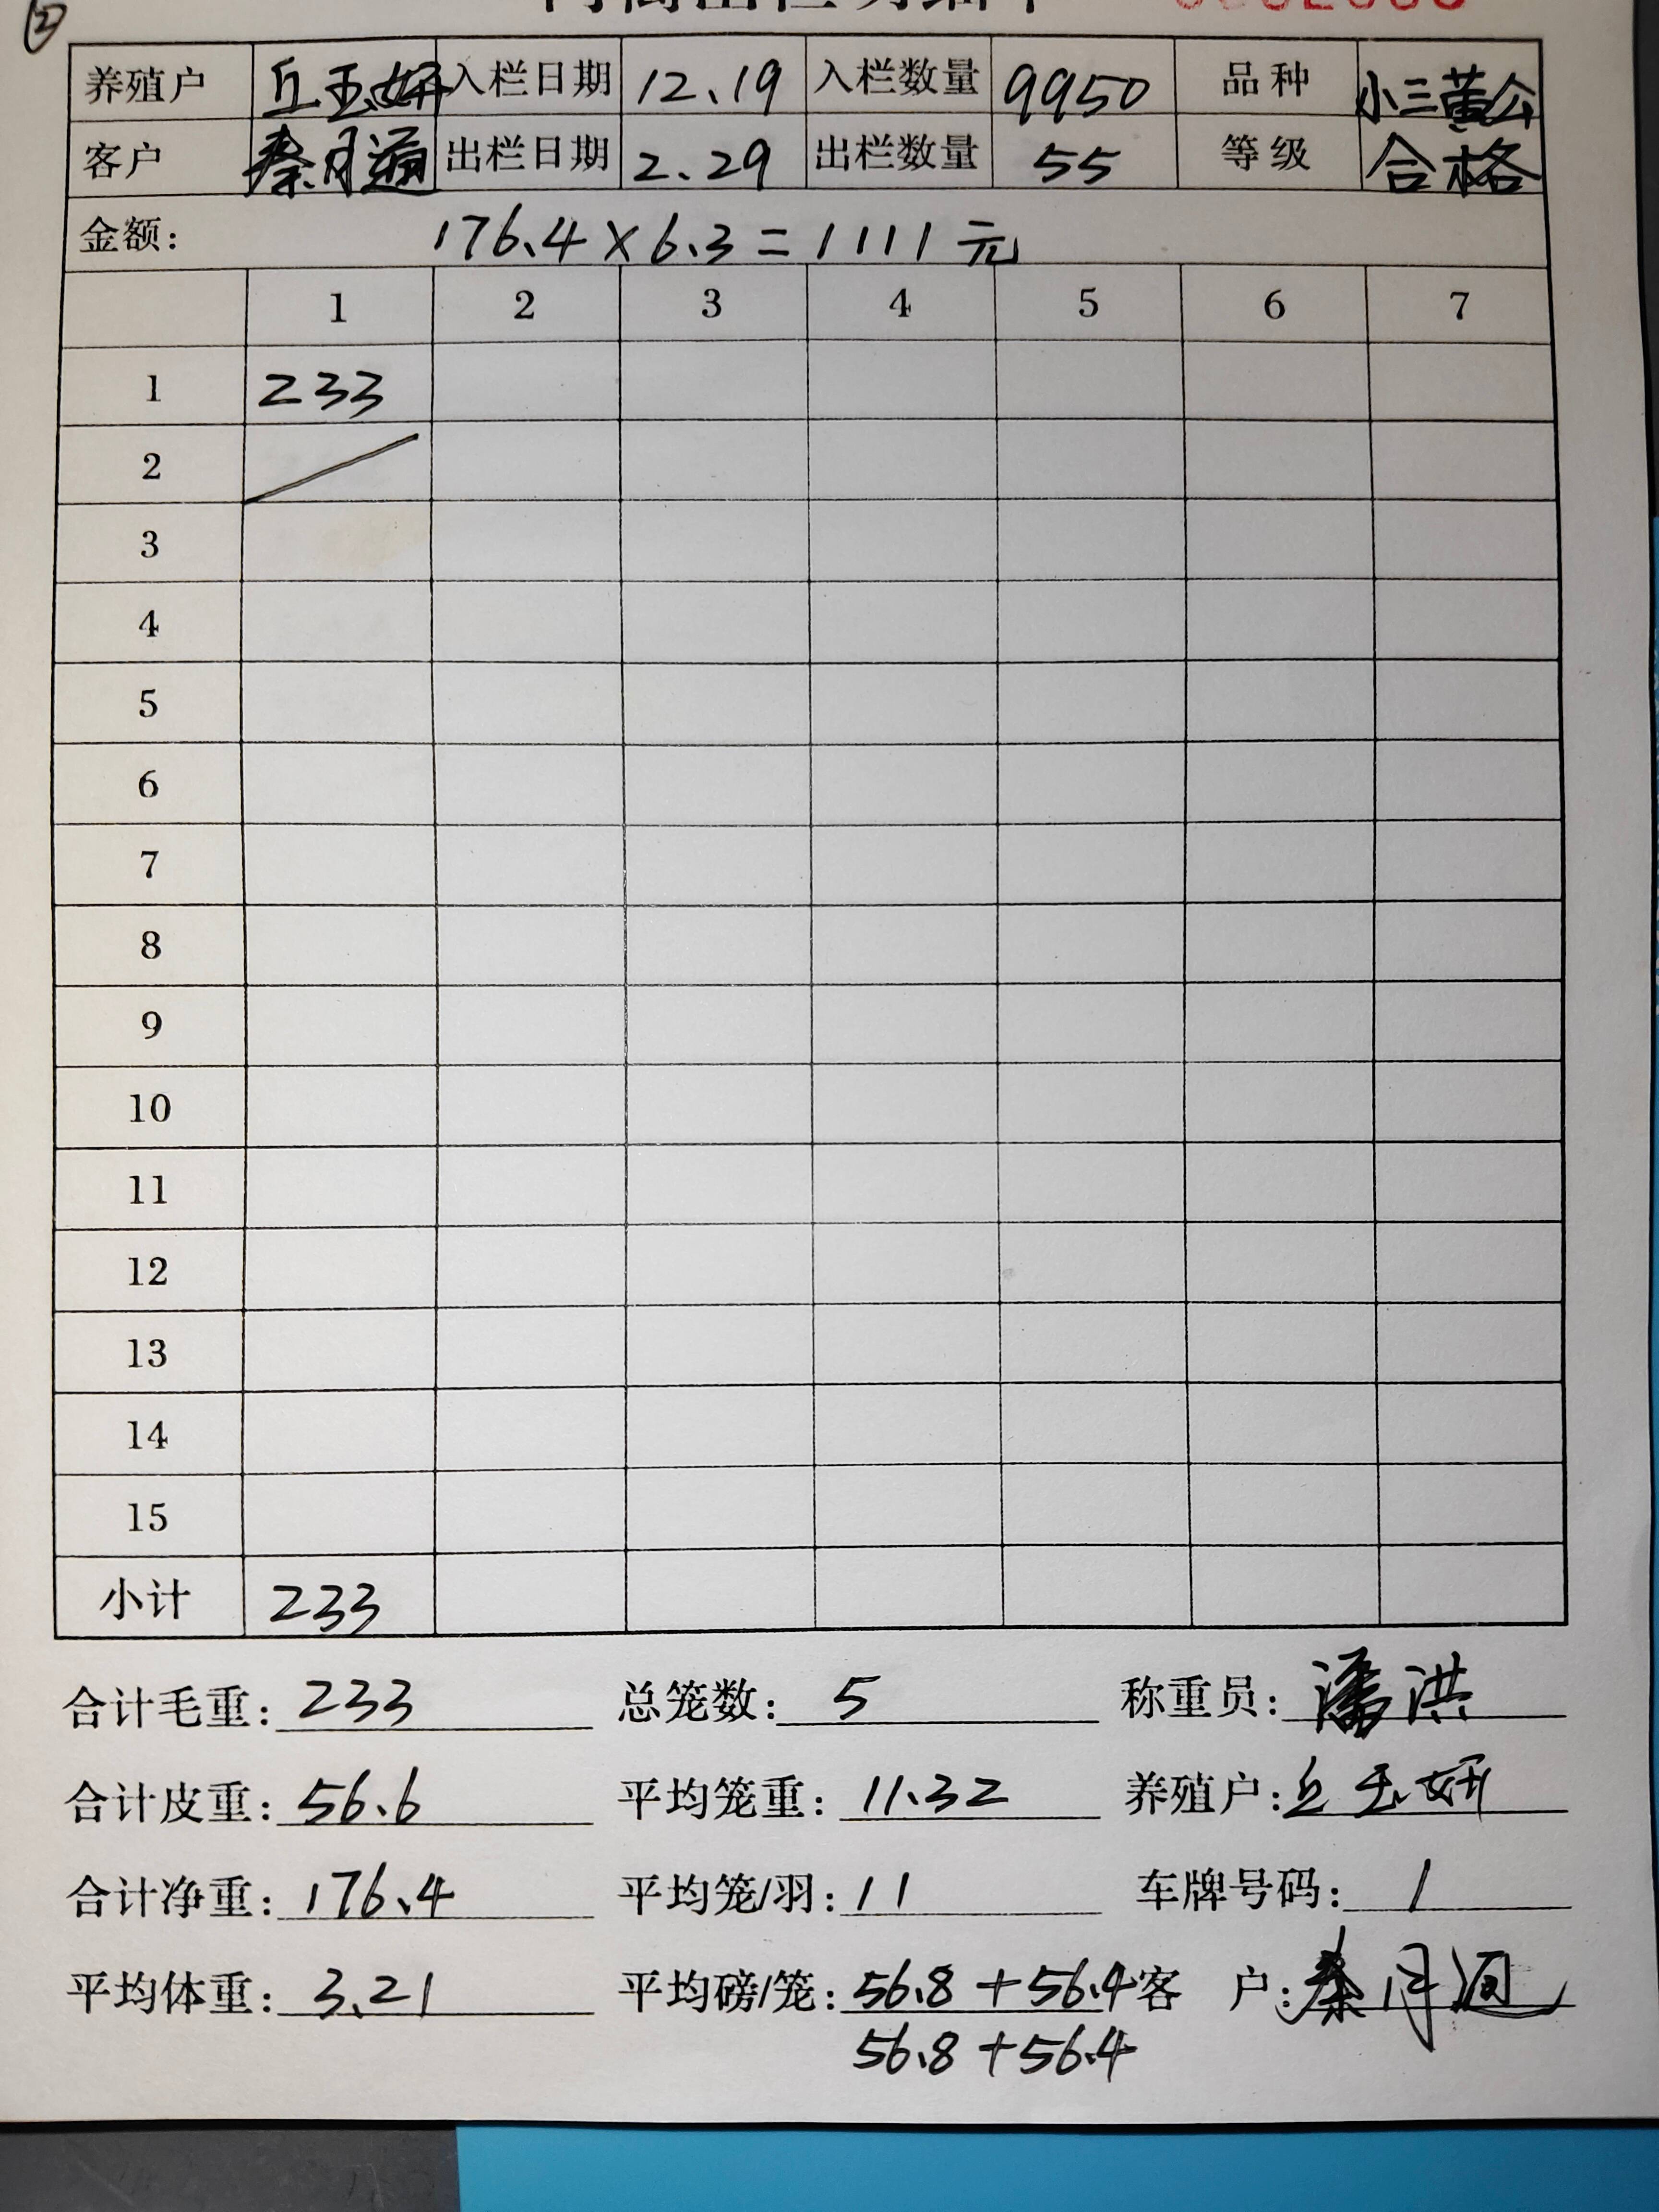 ②
养殖户 丘玉妍 入栏日期 12.19 入栏数量 9950 品种 小三黄公
客户 秦月通 出栏日期 2.29 出栏数量 55 等级 合格
金额: 176.4×6.3=1111元
1 2 3 4 5 6 7
1 233
2
3
4
5
6
7
8
9
10
11
12
13
14
15
小计 233
合计毛重: 233 总笼数: 5 称重员: 潘洪
合计皮重: 56.6 平均笼重: 11.32 养殖户: 丘玉妍
合计净重: 176.4 平均笼/羽: 11 车牌号码: /
平均体重: 3.21 平均磅/笼: 56.8+56.4 客户: 秦月通
56.8+56.4